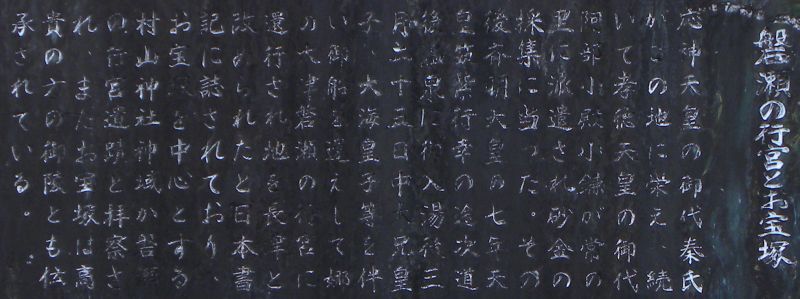 磐瀬の行宮とお宝塚
応神天皇の御代秦氏
がこの地に栄え、続
いて孝徳天皇の御代
阿部小殿小鎌が常の
里に派遣され砂金の
採集に当った。その
後斉明天皇の七年天
皇筑紫行幸の途次道
後温泉に御入湯後三
月二十五日中大兄皇
子、大海皇子等を伴
い御船を還えして娜
の大津磐瀬の行宮に
還行され地を長津と
改められたと日本書
記に誌されており、
お宝塚を中心とする
村山神社神域が磐瀬
の行宮遺跡と拝察さ
れ、またお宝塚は高
貴の方の御陵とも伝
承されている。